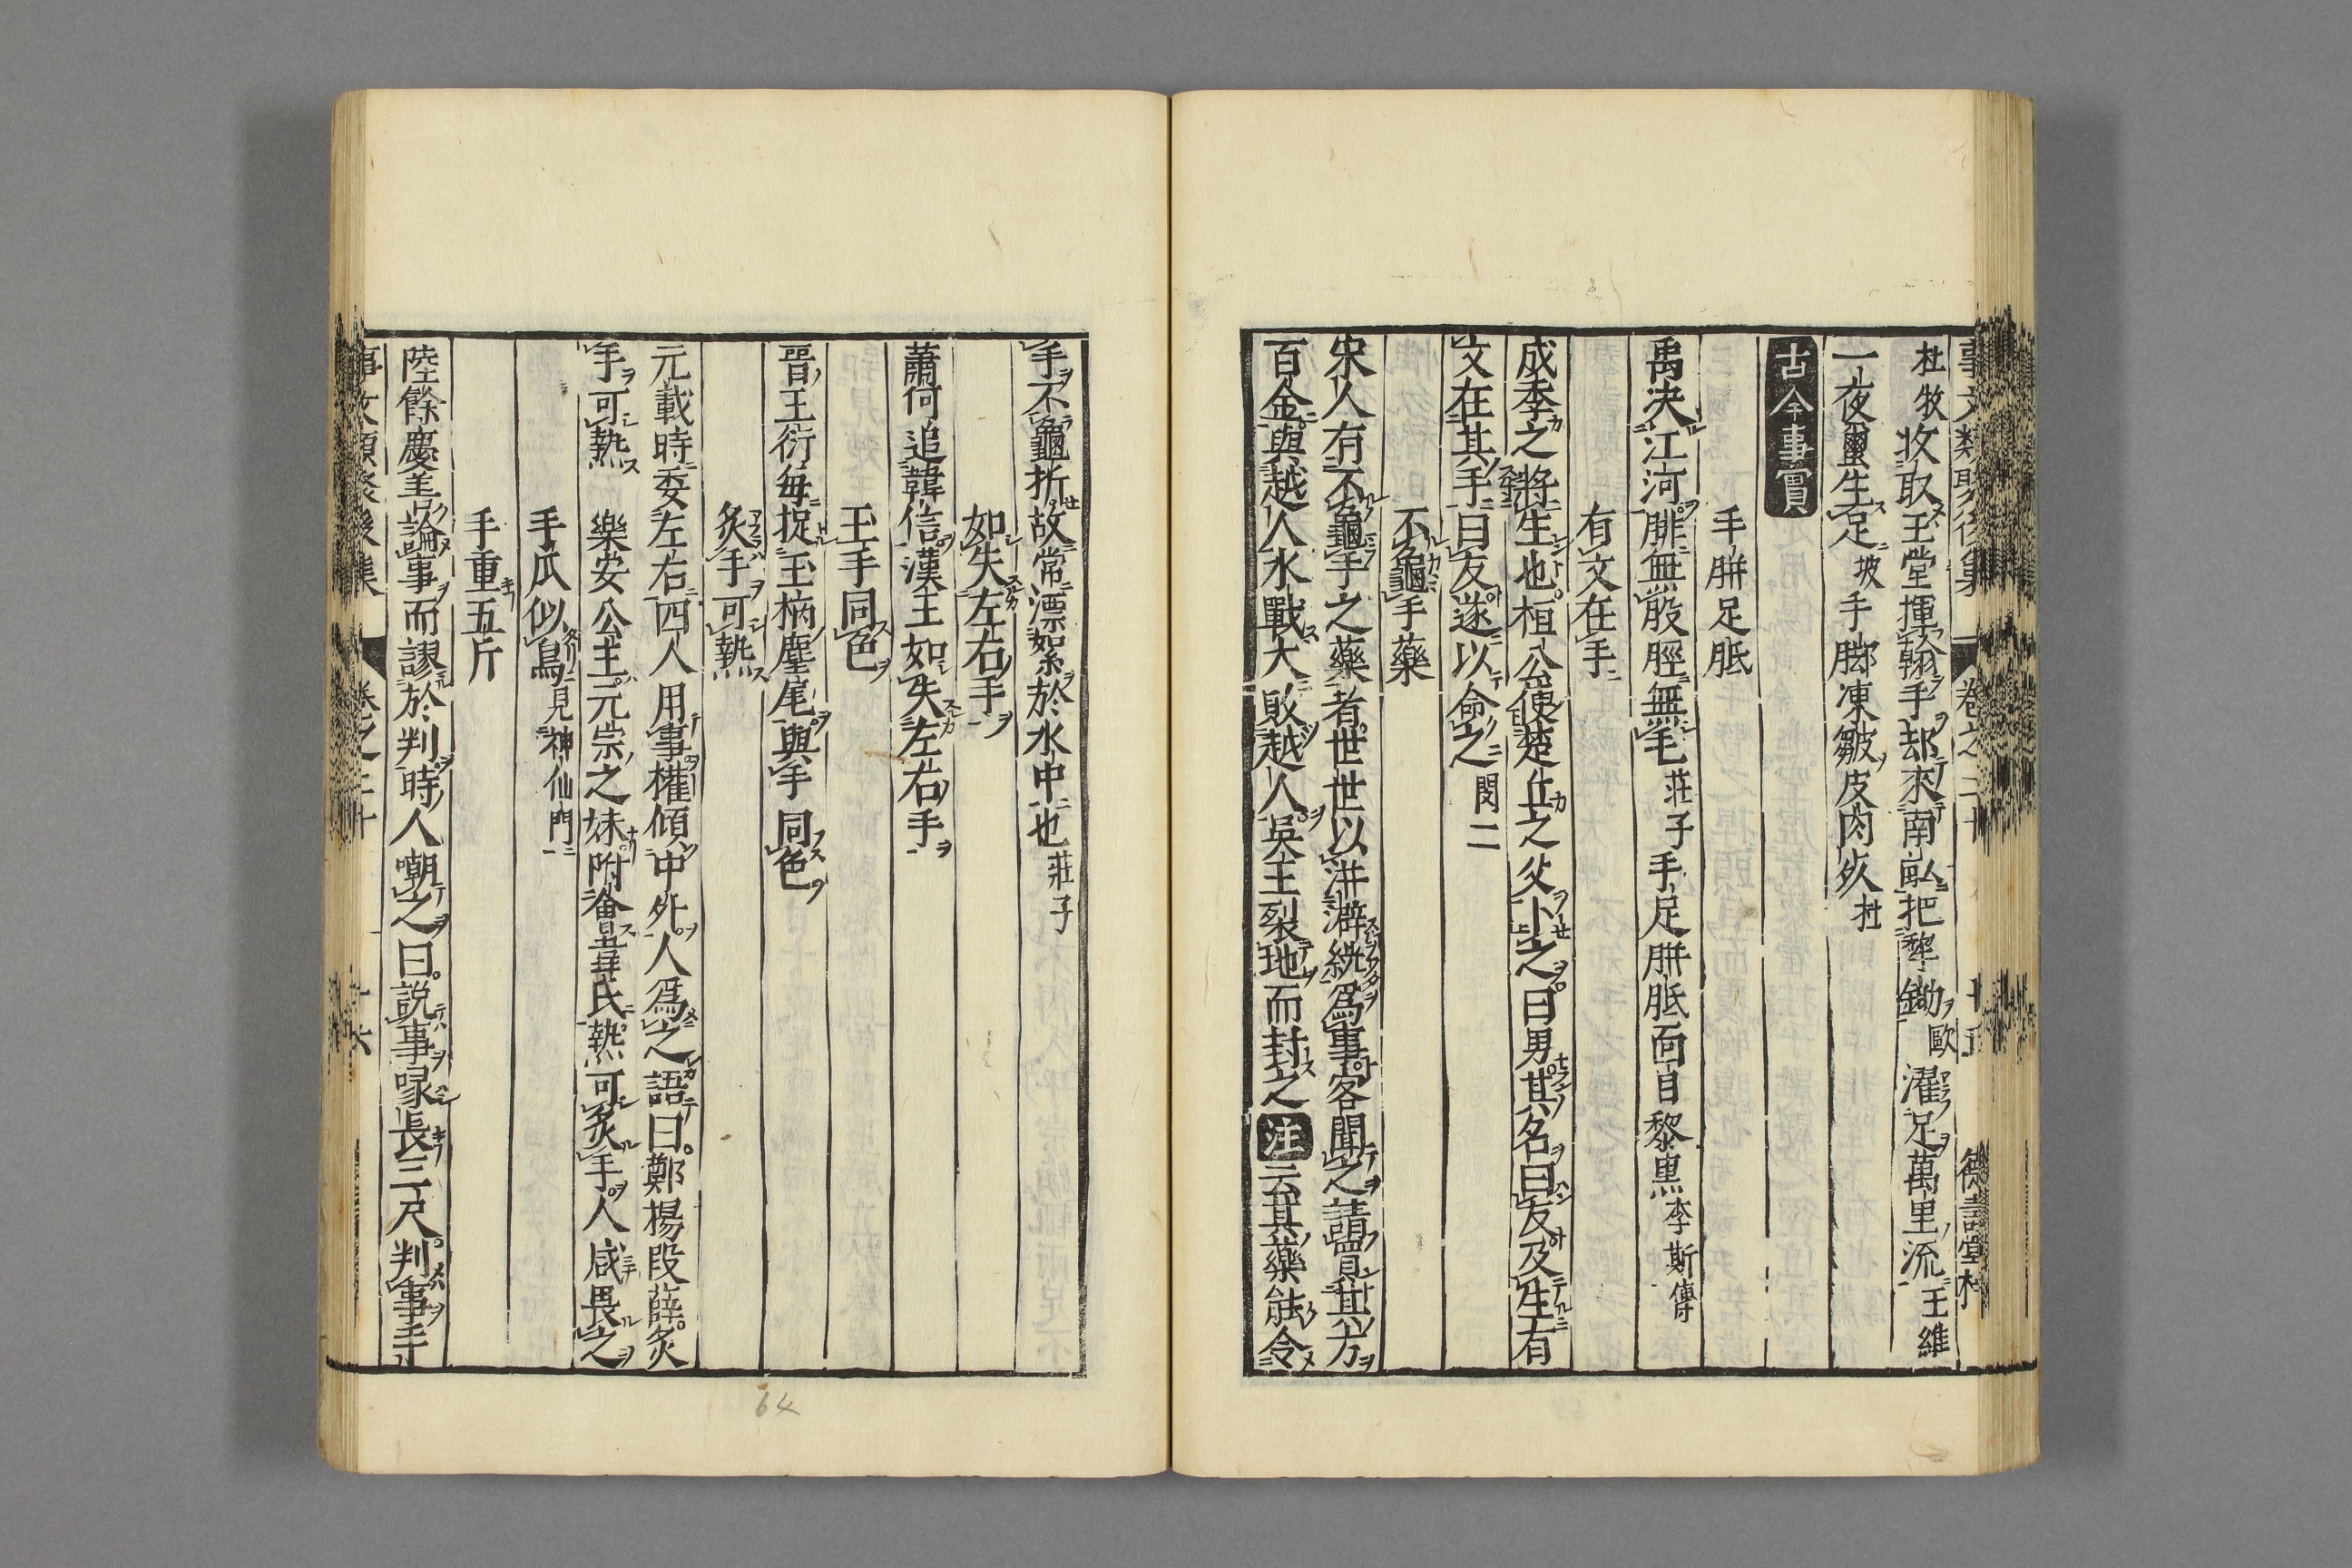 杜牧收取玉堂揮翰手却來南畝把犂鋤歐濯足萬里流王維
一夜蠒生足坡手脚凍皴皮肉死杜
古今事實
手胼足胝
禹决江河腓無胈脛無毛莊子手足胼胝面目黎黒李斯傳
有文在手
成季之將生也桓公使楚丘之父卜之曰男其名曰友及生有
文在其手曰友遂以命之閔二
不龜手藥
宋人有不龜手之藥者世世以洴澼絖爲事客聞之請買其方
百金與越人水戰大敗越人吳王裂地而封之注云其藥能令
手不龜折故常漂絮於水中也莊子
如失左右手
蕭何追韓信漢王如失左右手
玉手同色
晋王衍每捉玉柄麈尾與手同色
炙手可熱
元載時委左右四人用事權傾中外人爲之語曰鄭楊段薛炙
手可熱 樂安公主元宗之妹附會韋氏熱可炙手人咸畏之
手爪似鳥見神仙門
手重五斤
陸餘慶善論事而謬於判時人嘲之曰說事喙長三尺判事手